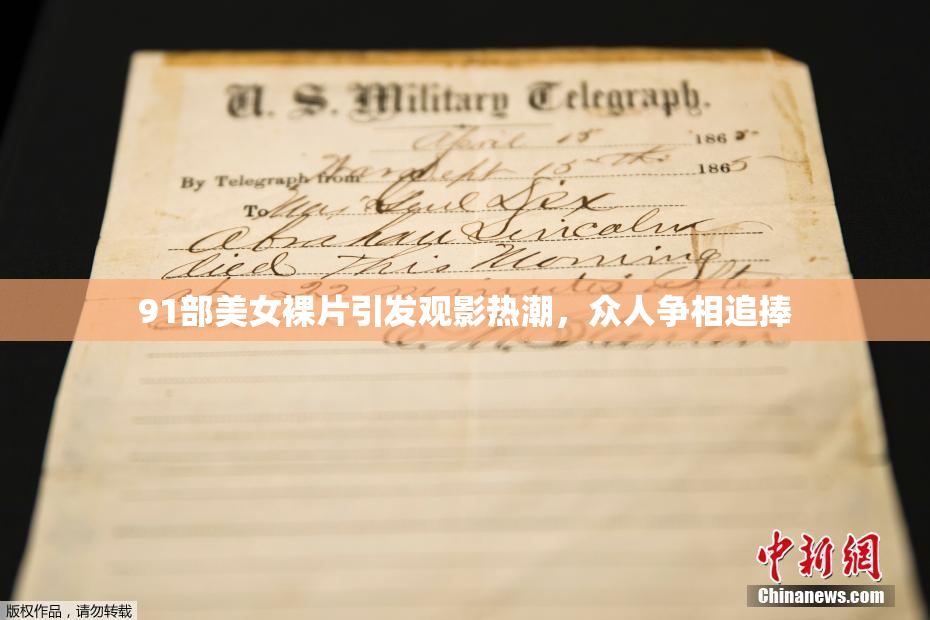 U. S. Military Telegraph.
April 15 1865
By Telegraph from War Dept 15th 1865
To Maj Genl Dix
Abraham Lincoln
died This Morning
at 22 minutes after
91部美女裸片引发观影热潮，众人争相追捧
中新網
Chinanews.com
版权作品，请勿转载